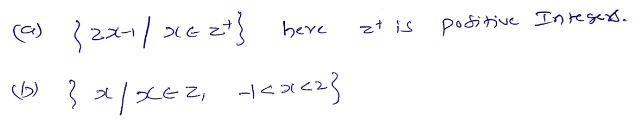 (a) { 2x-1 / x ∈ z⁺} here z⁺ is positive Integers.
(b) { x / x ∈ Z, -1 < x < 2}